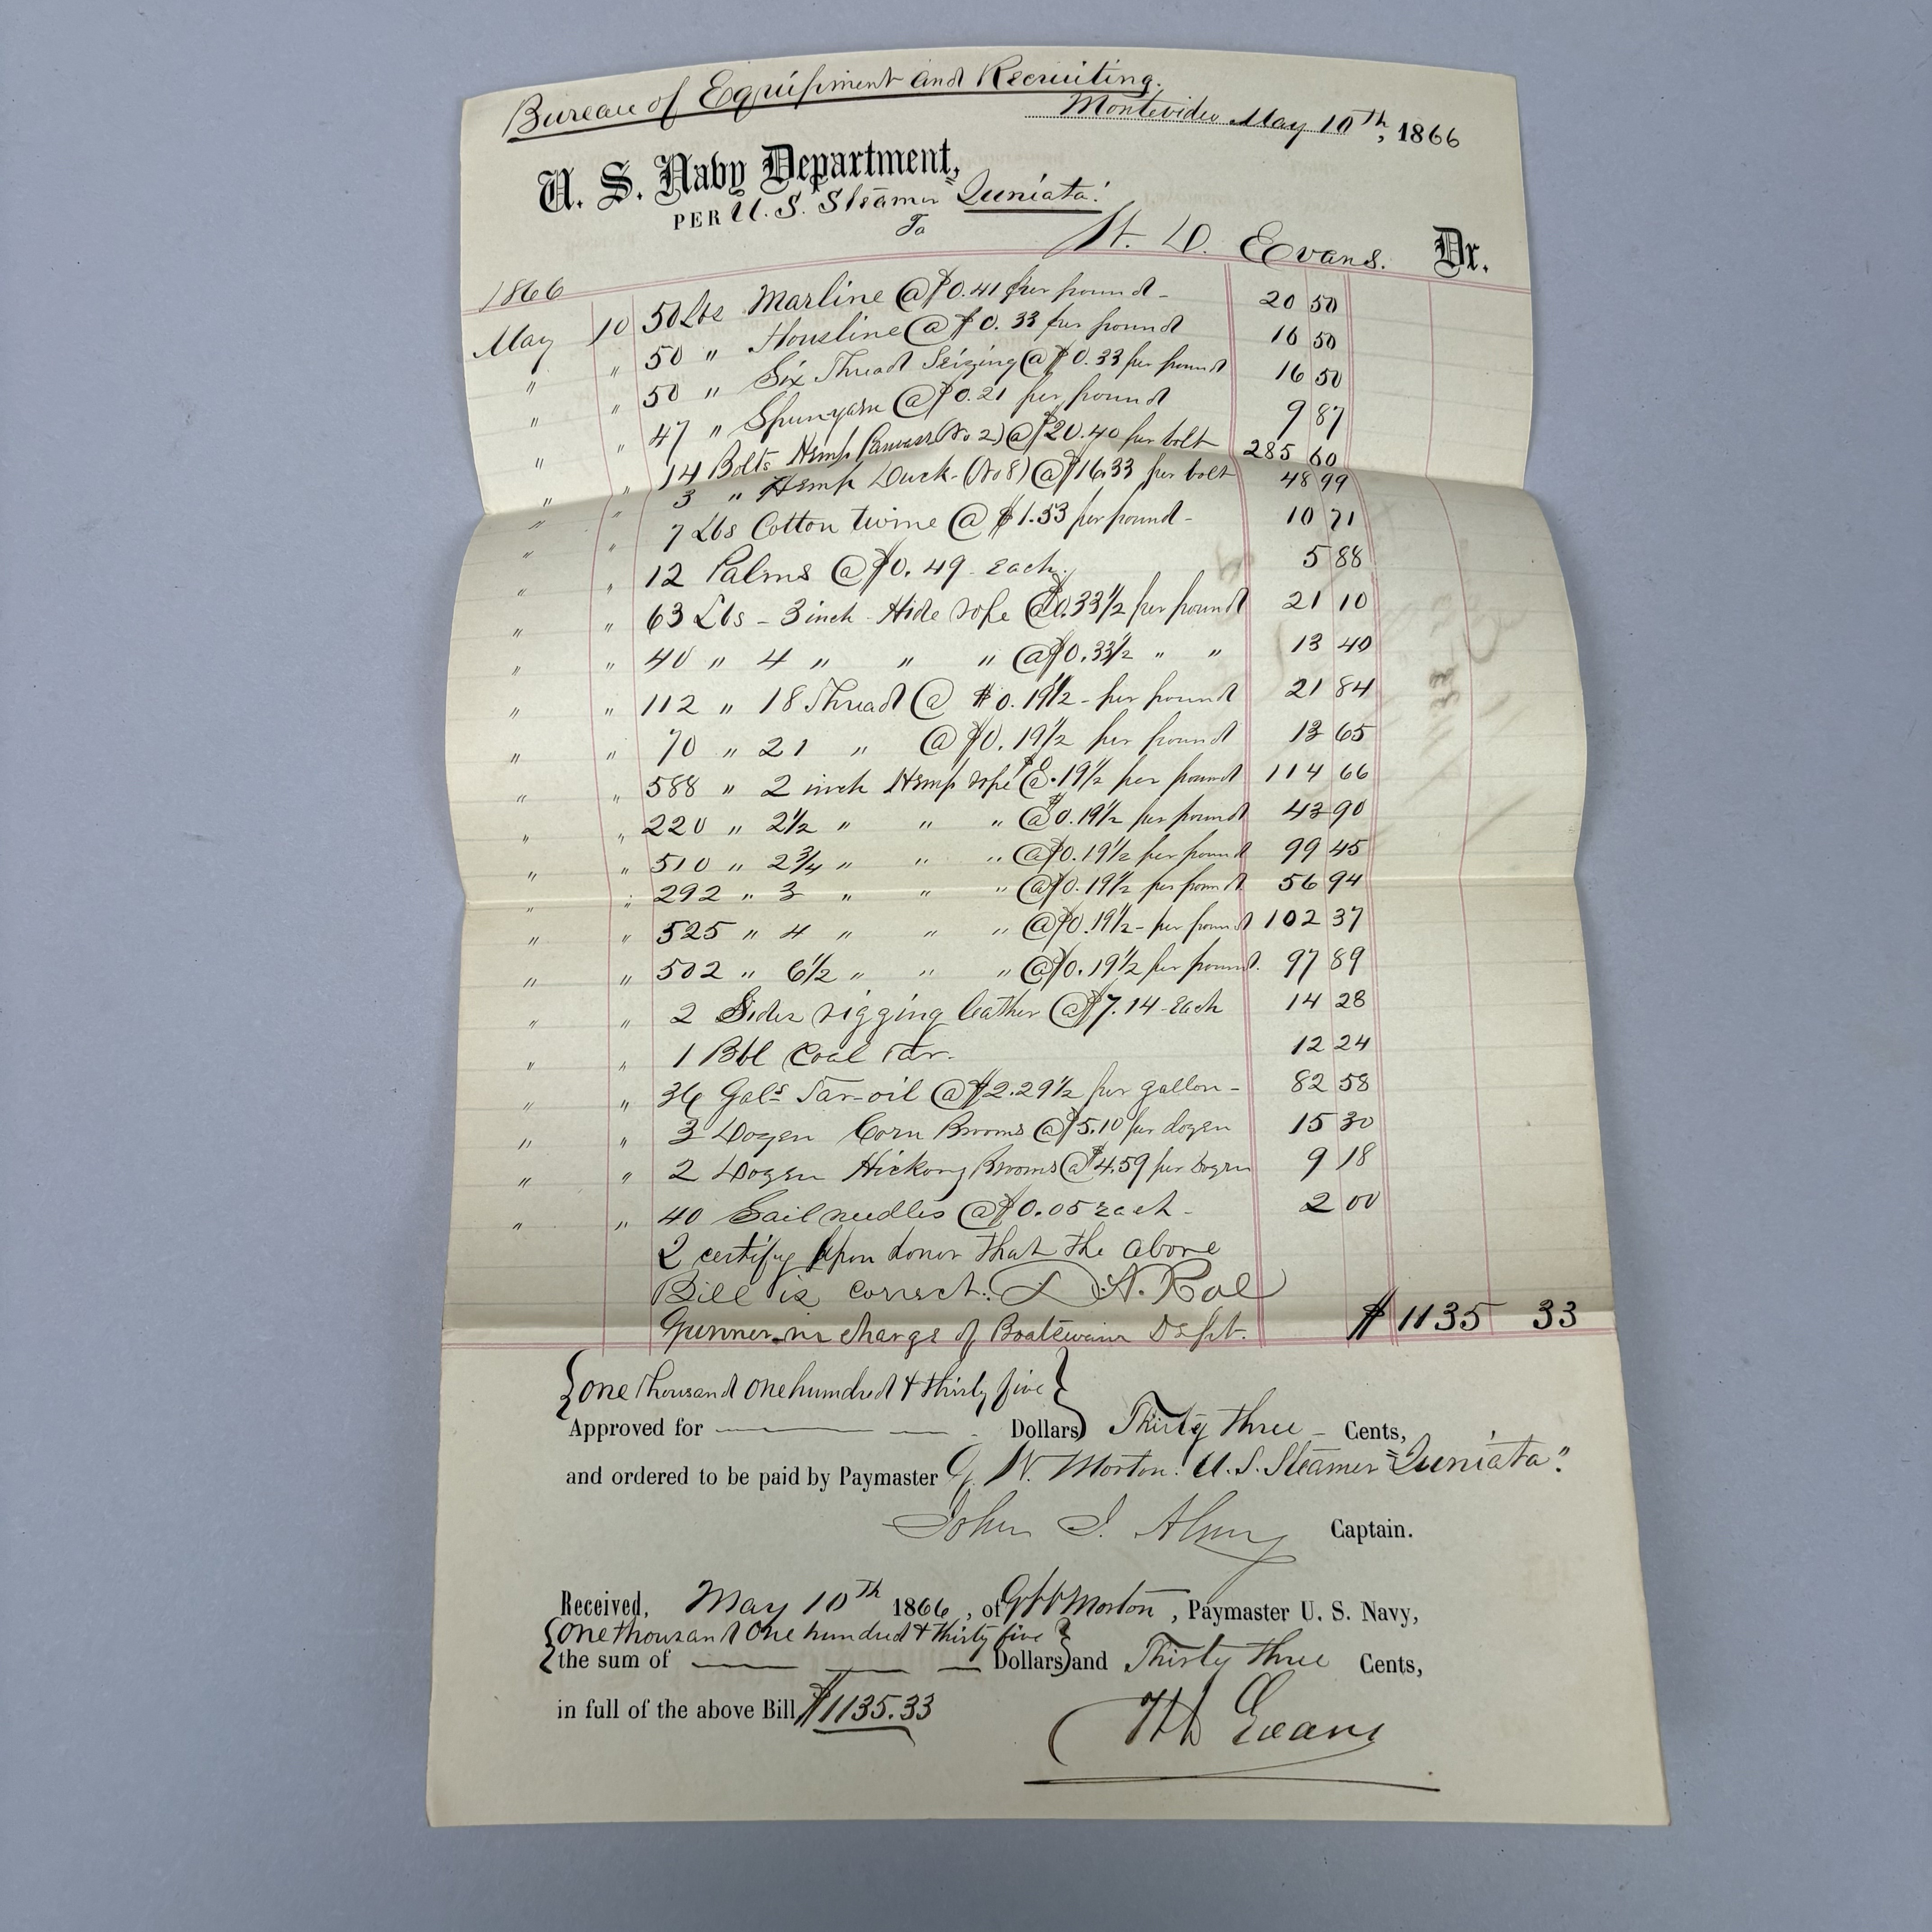 Bureau of Equipment and Recruiting.
Montevideo May 10th, 1866
U. S. Navy Department,
PER U. S. Steamer "Juniata."
To
H. D. Evans. Dr.
1866
May 10 50 Lbs Marline @ $0.41 per pound - 20 50
" " 50 " Housline @ $0.33 per pound 16 50
" " 50 " Six Thread Seizing @ $0.33 per pound 16 50
" " 47 " Spunyarn @ $0.21 per pound 9 87
" " 14 Bolts Hemp Canvass (No 2) @ $20.40 per bolt 285 60
" " 3 " Hemp Duck - (No 8) @ $16.33 per bolt 48 99
" " 7 Lbs Cotton twine @ $1.53 per pound - 10 71
" " 12 Palms @ $0.49 each. 5 88
" " 63 Lbs - 3 inch Hide rope @ $0.33 1/2 per pound 21 10
" " 40 " 4 " " " @ $0.33 1/2 " " 13 40
" " 112 " 18 Thread @ $0.19 1/2 - per pound 21 84
" " 70 " 21 " @ $0.19 1/2 per pound 13 65
" " 588 " 2 inch Hemp rope @ $0.19 1/2 per pound 114 66
" " 220 " 2 1/2 " " " @ $0.19 1/2 per pound 43 90
" " 510 " 2 3/4 " " " @ $0.19 1/2 per pound 99 45
" " 292 " 3 " " " @ $0.19 1/2 per pound 56 94
" " 525 " 4 " " " @ $0.19 1/2 - per pound 102 37
" " 502 " 6 1/2 " " " @ $0.19 1/2 per pound. 97 89
" " 2 Sides rigging leather @ $7.14 each 14 28
" " 1 Bbl Coal Tar. 12 24
" " 36 Gals Tar-oil @ $2.29 1/2 per gallon - 82 58
" " 3 Dozen Corn Brooms @ $5.10 per dozen 15 30
" " 2 Dozen Hickory Brooms @ $4.59 per Dozen 9 18
" " 40 Sail needles @ $0.05 each - 2 00
I certify upon honor that the above
Bill is correct.
Gunner in charge of Boatswain Dept. $1135 33
{One thousand one hundred & thirty five}
Approved for Dollars Thirty three - Cents,
and ordered to be paid by Paymaster G. W. Morton. U. S. Steamer "Juniata".
John J. Almy Captain.
Received, May 10th 1866, of G W Morton, Paymaster U. S. Navy,
{One thousand One hundred & thirty five}
the sum of Dollars and Thirty three Cents,
in full of the above Bill $1135.33
H D Evans